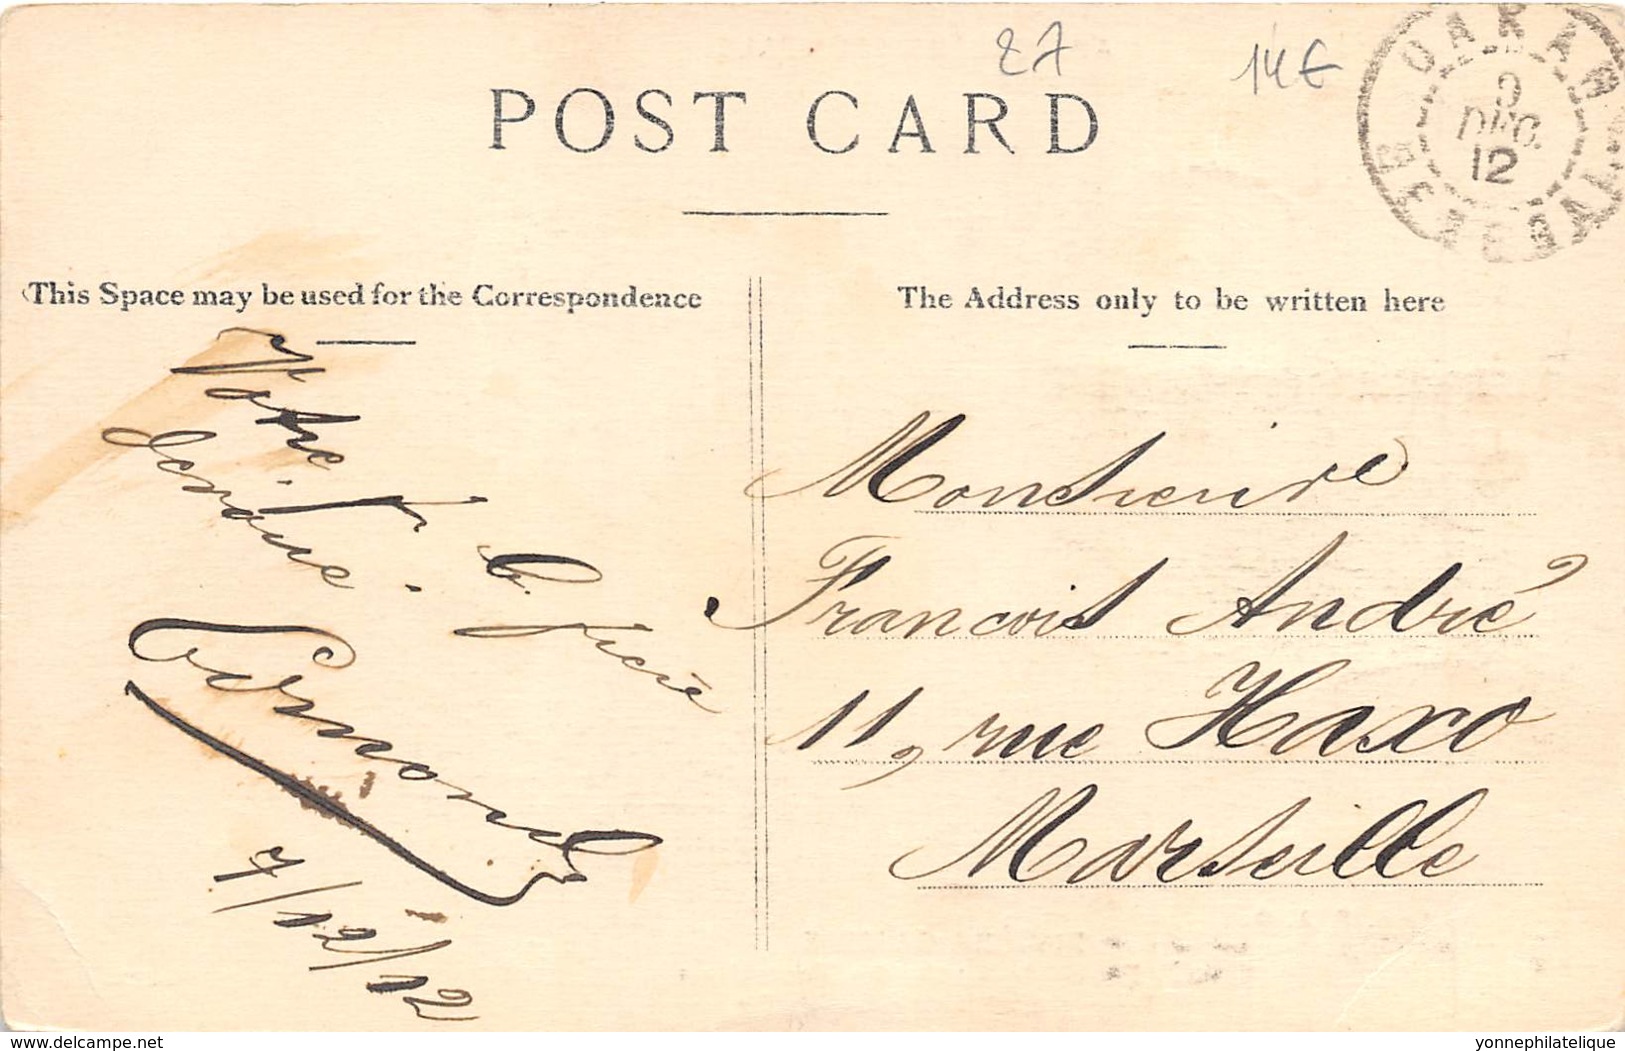 27
14€
POST CARD
DAKAR
9
DEC.
12
This Space may be used for the Correspondence
The Address only to be written here
Votre f.
b. frère
7/12/12
Monsieur
François André
11, rue Haxo
Marseille
www.delcampe.net
yonnephilatelique